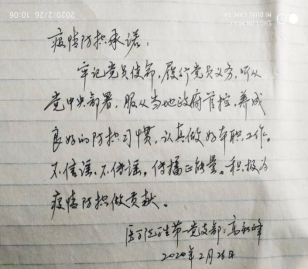 2020/2/26 10:08
疫情防控承诺:
牢记党员使命,履行党员义务,听从
党中央部署,服从当地政府管控,养成
良好的防控习惯,认真做好本职工作。
不信谣,不传谣,传播正能量。积极为
疫情防控做贡献。
第一党支部:高新峰
2020年2月26日